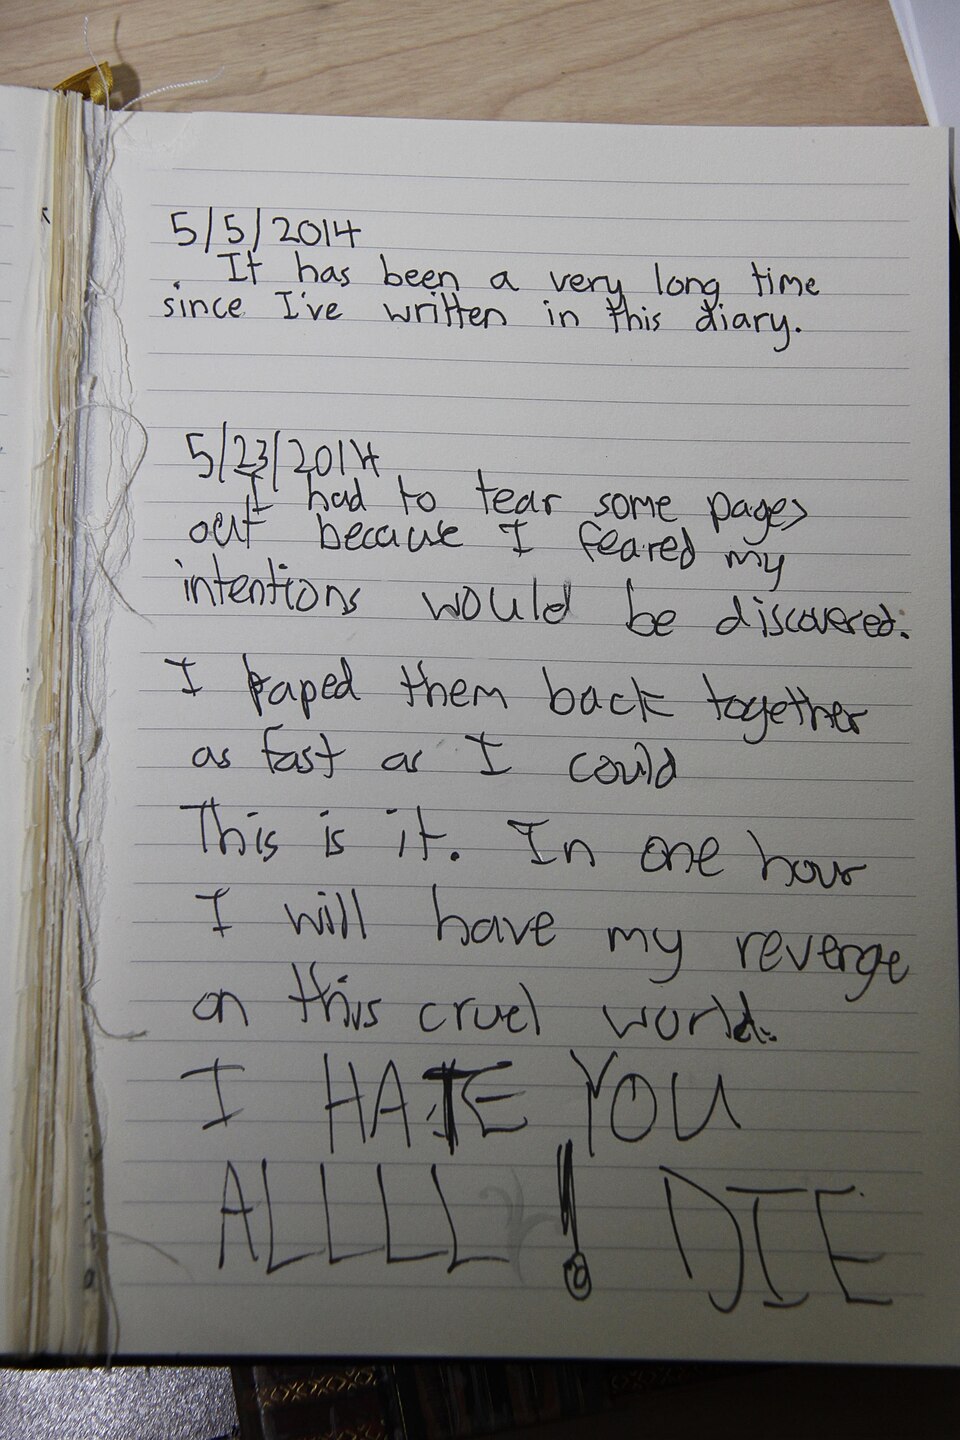 5/5/2014
It has been a very long time
since I've written in this diary.
5/23/2014
I had to tear some pages
out because I feared my
intentions would be discovered.
I taped them back together
as fast as I could
This is it. In one hour
I will have my revenge
on this cruel world.
I HATE YOU
ALLLL! DIE